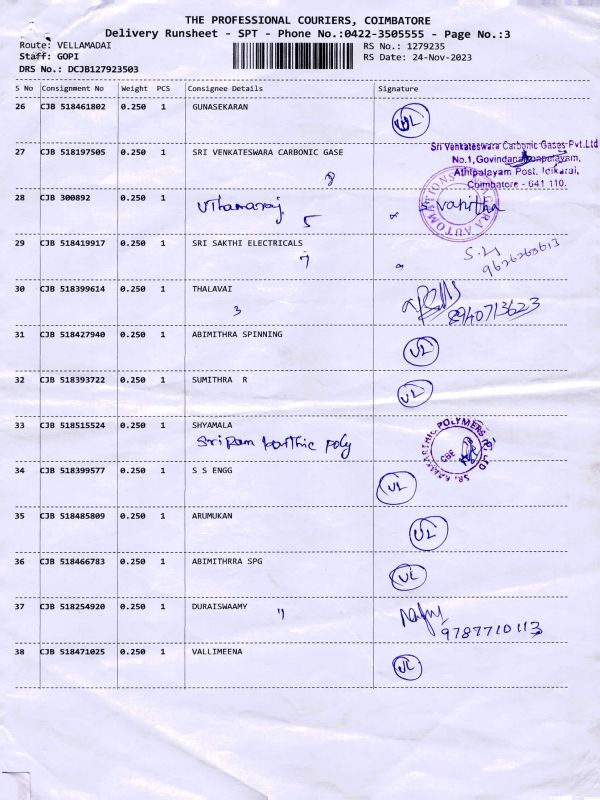 THE PROFESSIONAL COURIERS, COIMBATORE
Delivery Runsheet - SPT - Phone No.:0422-3505555 - Page No.:3
Route: VELLAMADAI RS No.: 1279235
Staff: GOPI RS Date: 24-Nov-2023
DRS No.: DCJB127923503
S No Consignment No Weight PCS Consignee Details Signature
26 CJB 518461802 0.250 1 GUNASEKARAN UL
Sri Venkateswara Carbonic Gases Pvt.Ltd
27 CJB 518197505 0.250 1 SRI VENKATESWARA CARBONIC GASE No.1,
8 Athipalayam Post, Idikarai,
Coimbatore - 641 110.
28 CJB 300892 0.250 1 S. vanitha
5
29 CJB 518419917 0.250 1 SRI SAKTHI ELECTRICALS
7 9626260613
30 CJB 518399614 0.250 1 THALAVAI
3 8940713623
31 CJB 518427940 0.250 1 ABIMITHRA SPINNING UL
32 CJB 518393722 0.250 1 SUMITHRA R UL
33 CJB 518515524 0.250 1 SHYAMALA
Sri Ram karthic poly SRI RAMKARTHIC POLYMERS (P) LTD CBE
34 CJB 518399577 0.250 1 S S ENGG UL
35 CJB 518485809 0.250 1 ARUMUKAN UL
36 CJB 518466783 0.250 1 ABIMITHRRA SPG UL
37 CJB 518254920 0.250 1 DURAISWAAMY 11
9787710113
38 CJB 518471025 0.250 1 VALLIMEENA UL